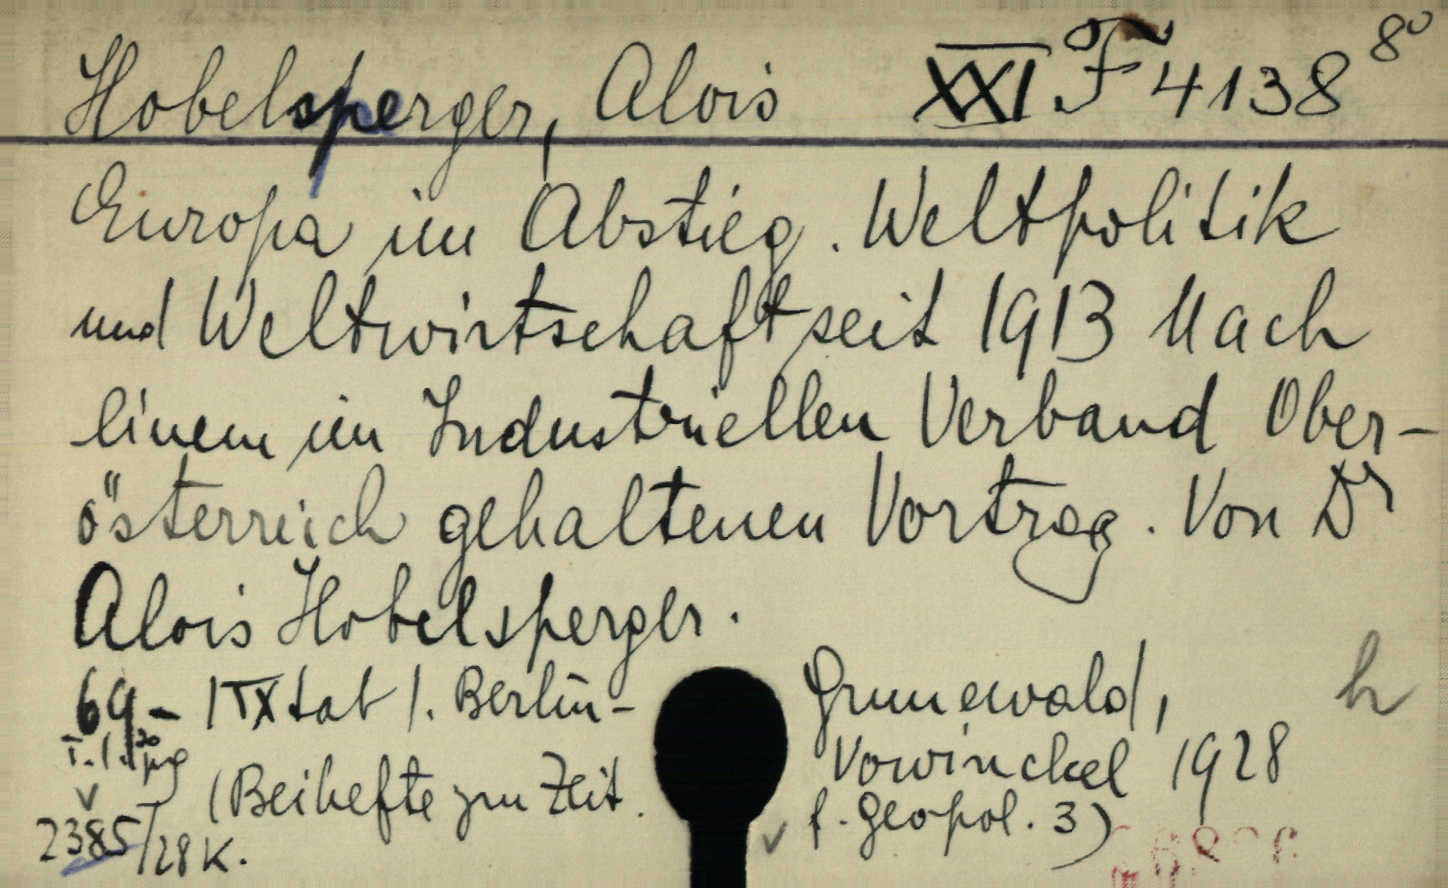 Hobelsperger, Alois XXI F 4138 8°
Europa im Abstieg. Weltpolitik
und Weltwirtschaft seit 1913 Nach
einem im Industriellen Verband Ober-
österreich gehaltenen Vortrag. Von Dr
Alois Hobelsperger.
69 - IX tab . Berlin - Grunewald, h
Vowinckel 1928
(Beihefte zur Zeit. f. Geopol. 3)
2385/28 K.